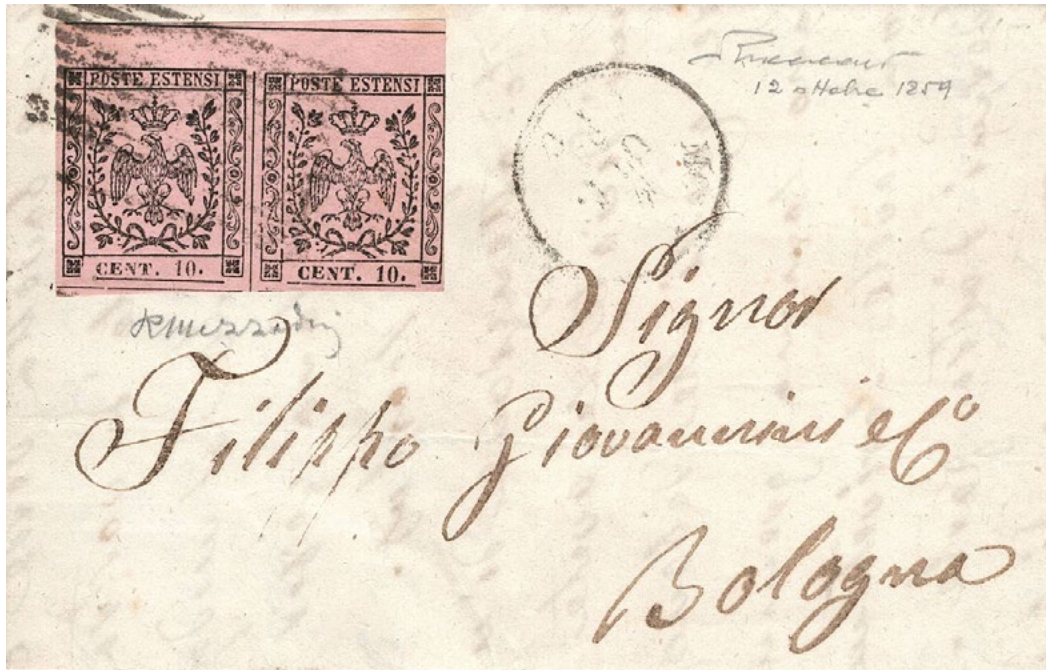 POSTE ESTENSI
POSTE ESTENSI
CENT. 10.
CENT. 10.
12 ottobre 1859
Signor
Filippo Giovannini e Cº
Bologna